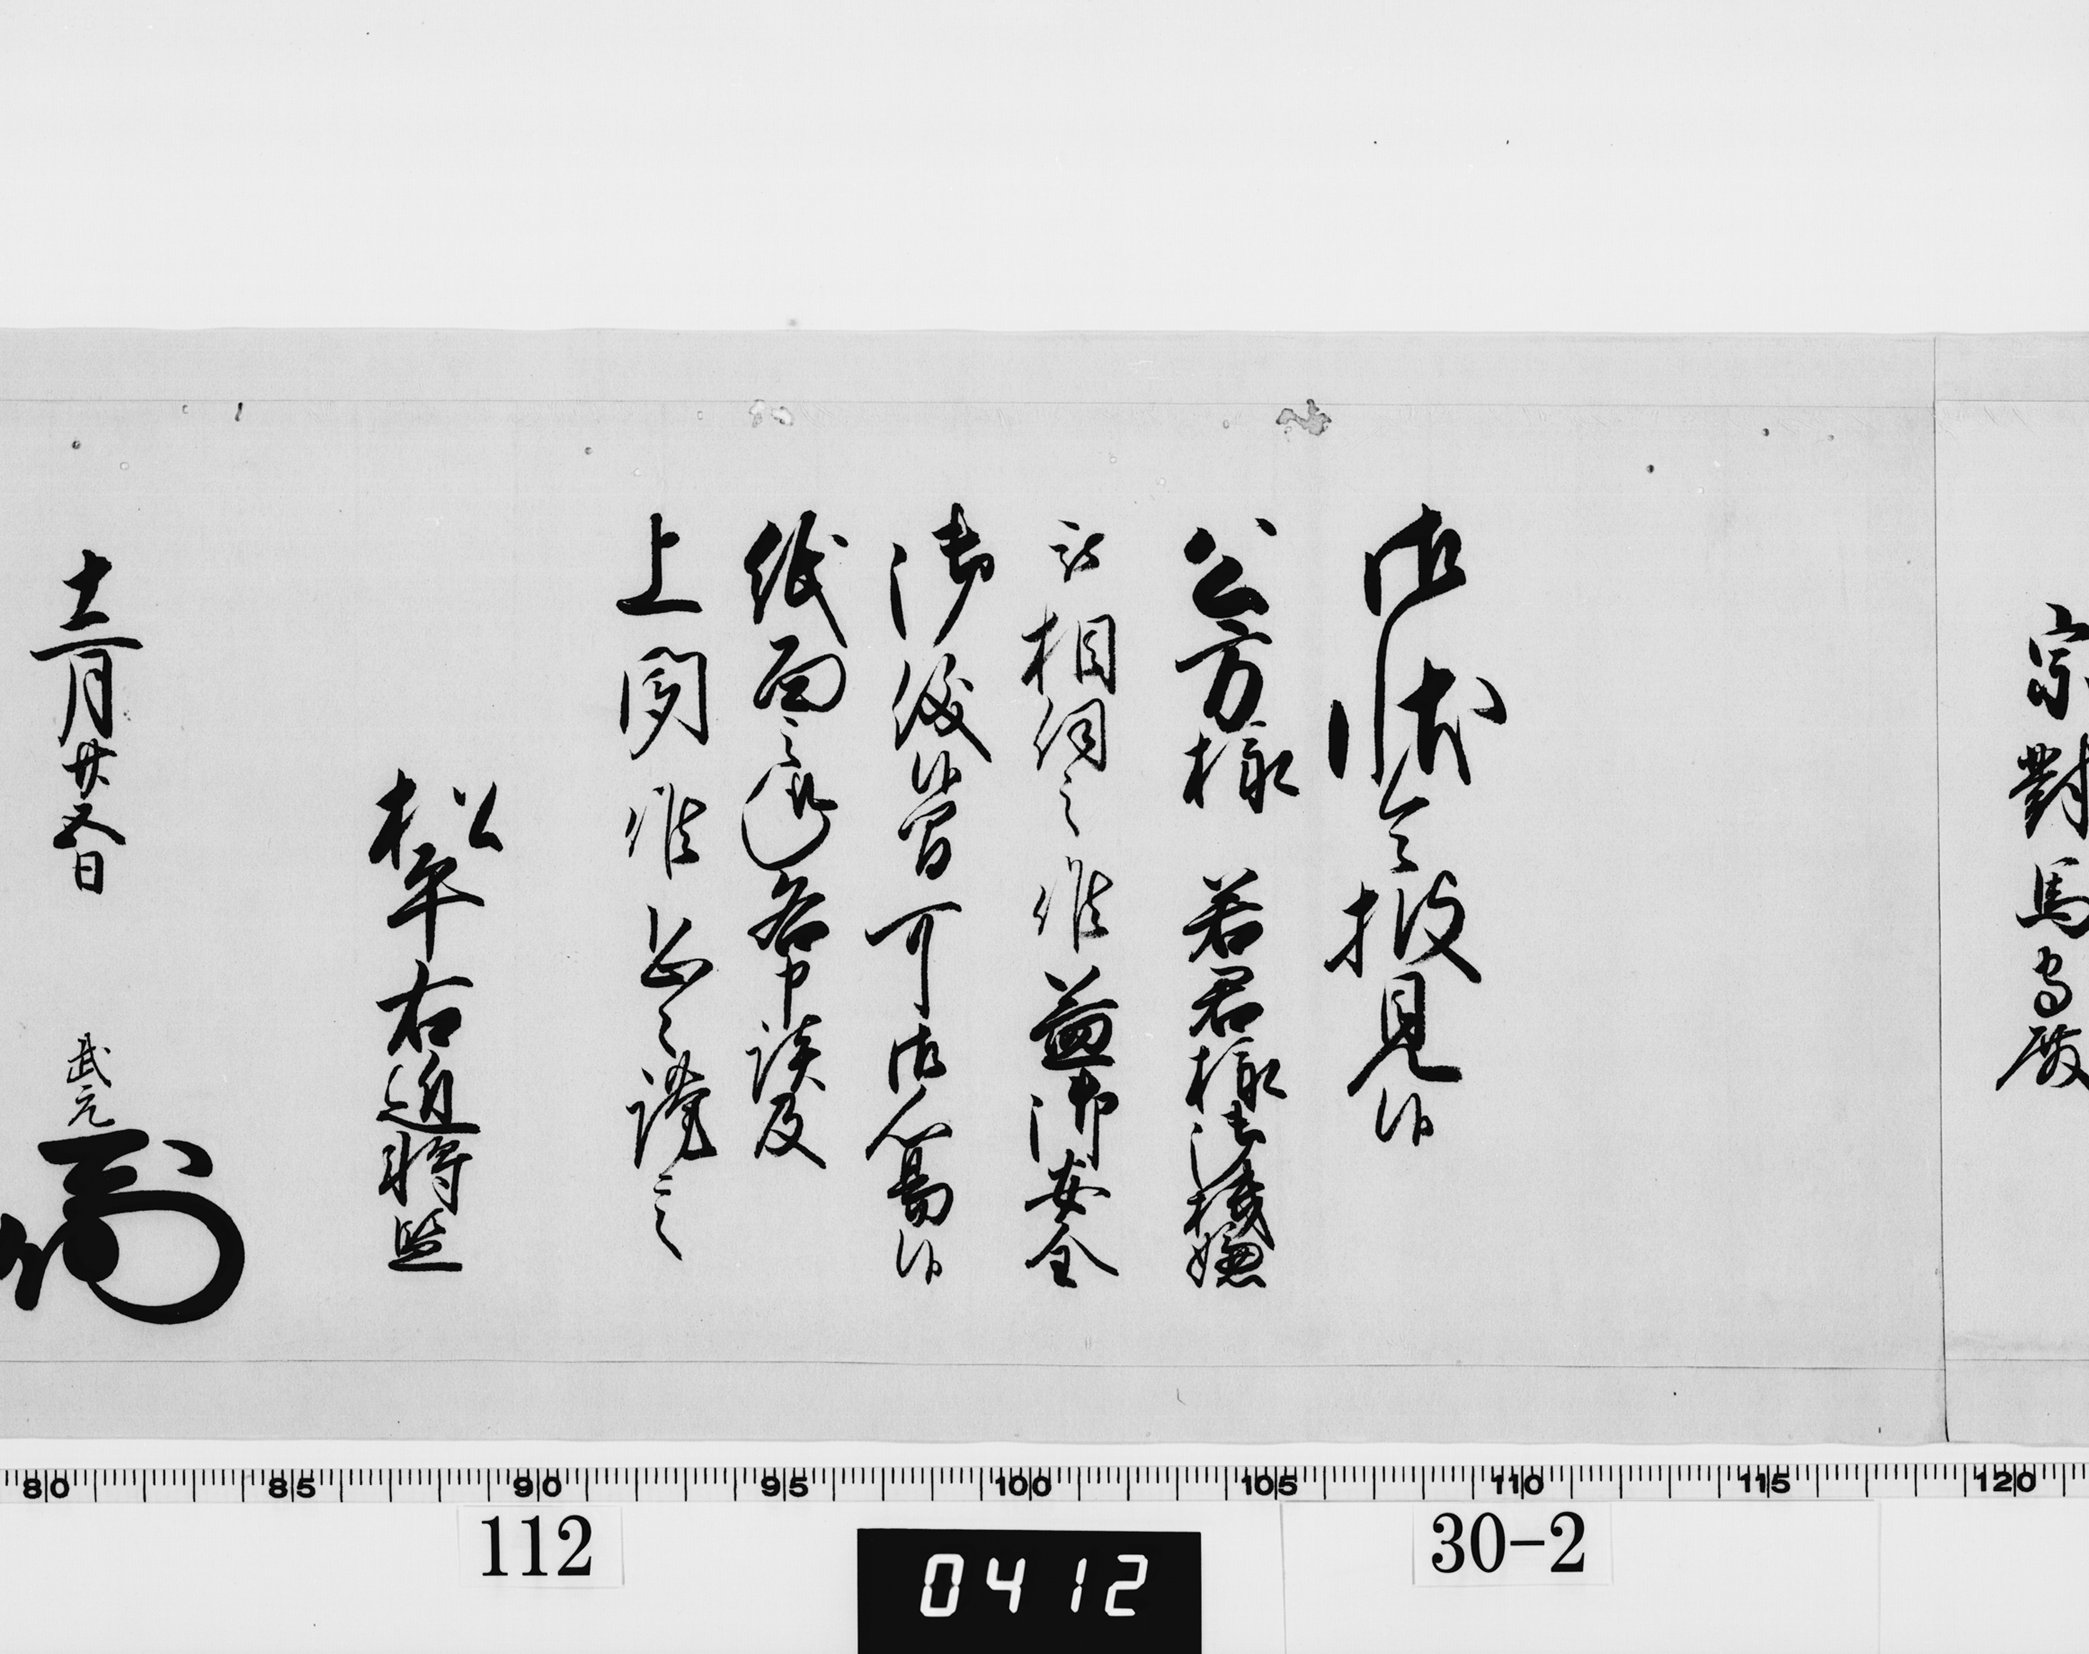 宗對馬守殿
御状令披見候
公方様 若君様御機嫌
被相伺之候益御安全
御儀候間可御心易候
紙面之趣各申談及
上聞候恐々謹言
松平右近將監
十二月廿五日 武元
80 85 90 95 100 105 110 115 120
112
30-2
0412